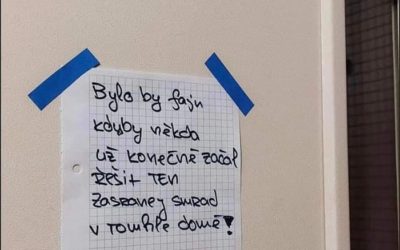 Bylo by fajn
kdyby někdo
už konečně začal
řešit TEN
zasraney smrad
v tomhle domě!